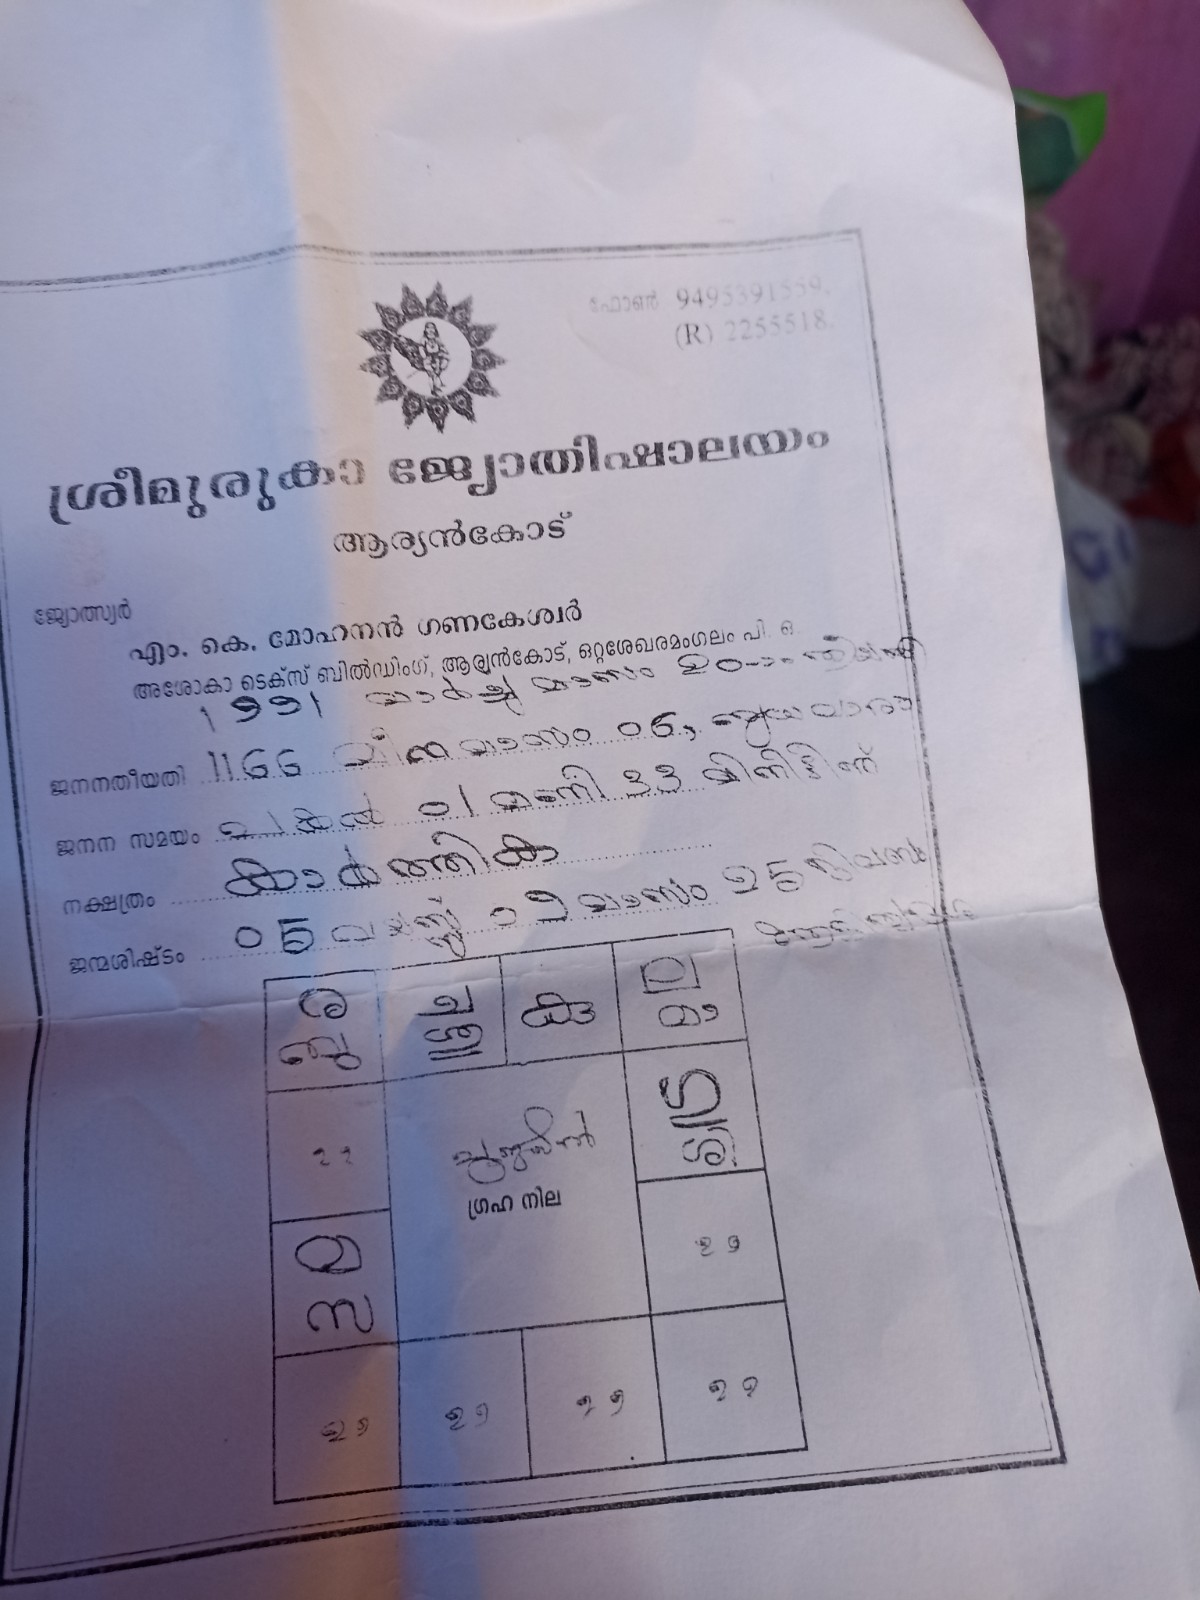 ഫോൺ 9495391559.
(R) 2255518.
ശ്രീമുരുകാ ജ്യോതിഷാലയം
ആര്യൻകോട്
ജ്യോത്സ്യർ
എം. കെ. മോഹനൻ ഗണകേശ്വർ
അശോകാ ടെക്സ് ബിൽഡിംഗ്, ആര്യൻകോട്, ഒറ്റശേഖരമംഗലം പി. ഒ.
1991 മാർച്ച് മാസം 20-ാം തിയതി
ജനനതീയതി 1166 മീന മാസം 06, ബുധ
ജനന സമയം പകൽ 01 മണി 33 മിനിട്ടിന്
നക്ഷത്രം കാർത്തിക
ജന്മശിഷ്ടം 05 വയസ്സ് 09 മാസം 25 ദിവസം
ര ച കു ല
ബു ശു മാ
ഗു
ഗ്രഹ നില
മ
സ